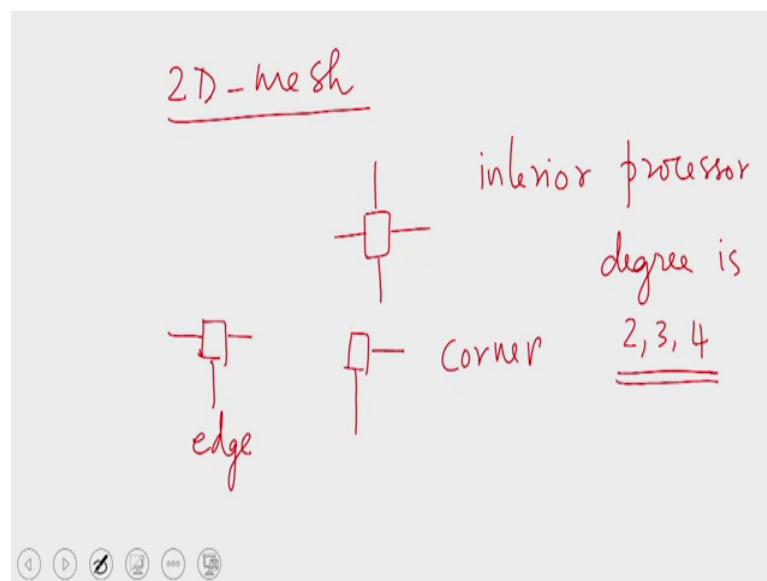 2D-mesh
interior processor
degree is
2, 3, 4
corner
edge